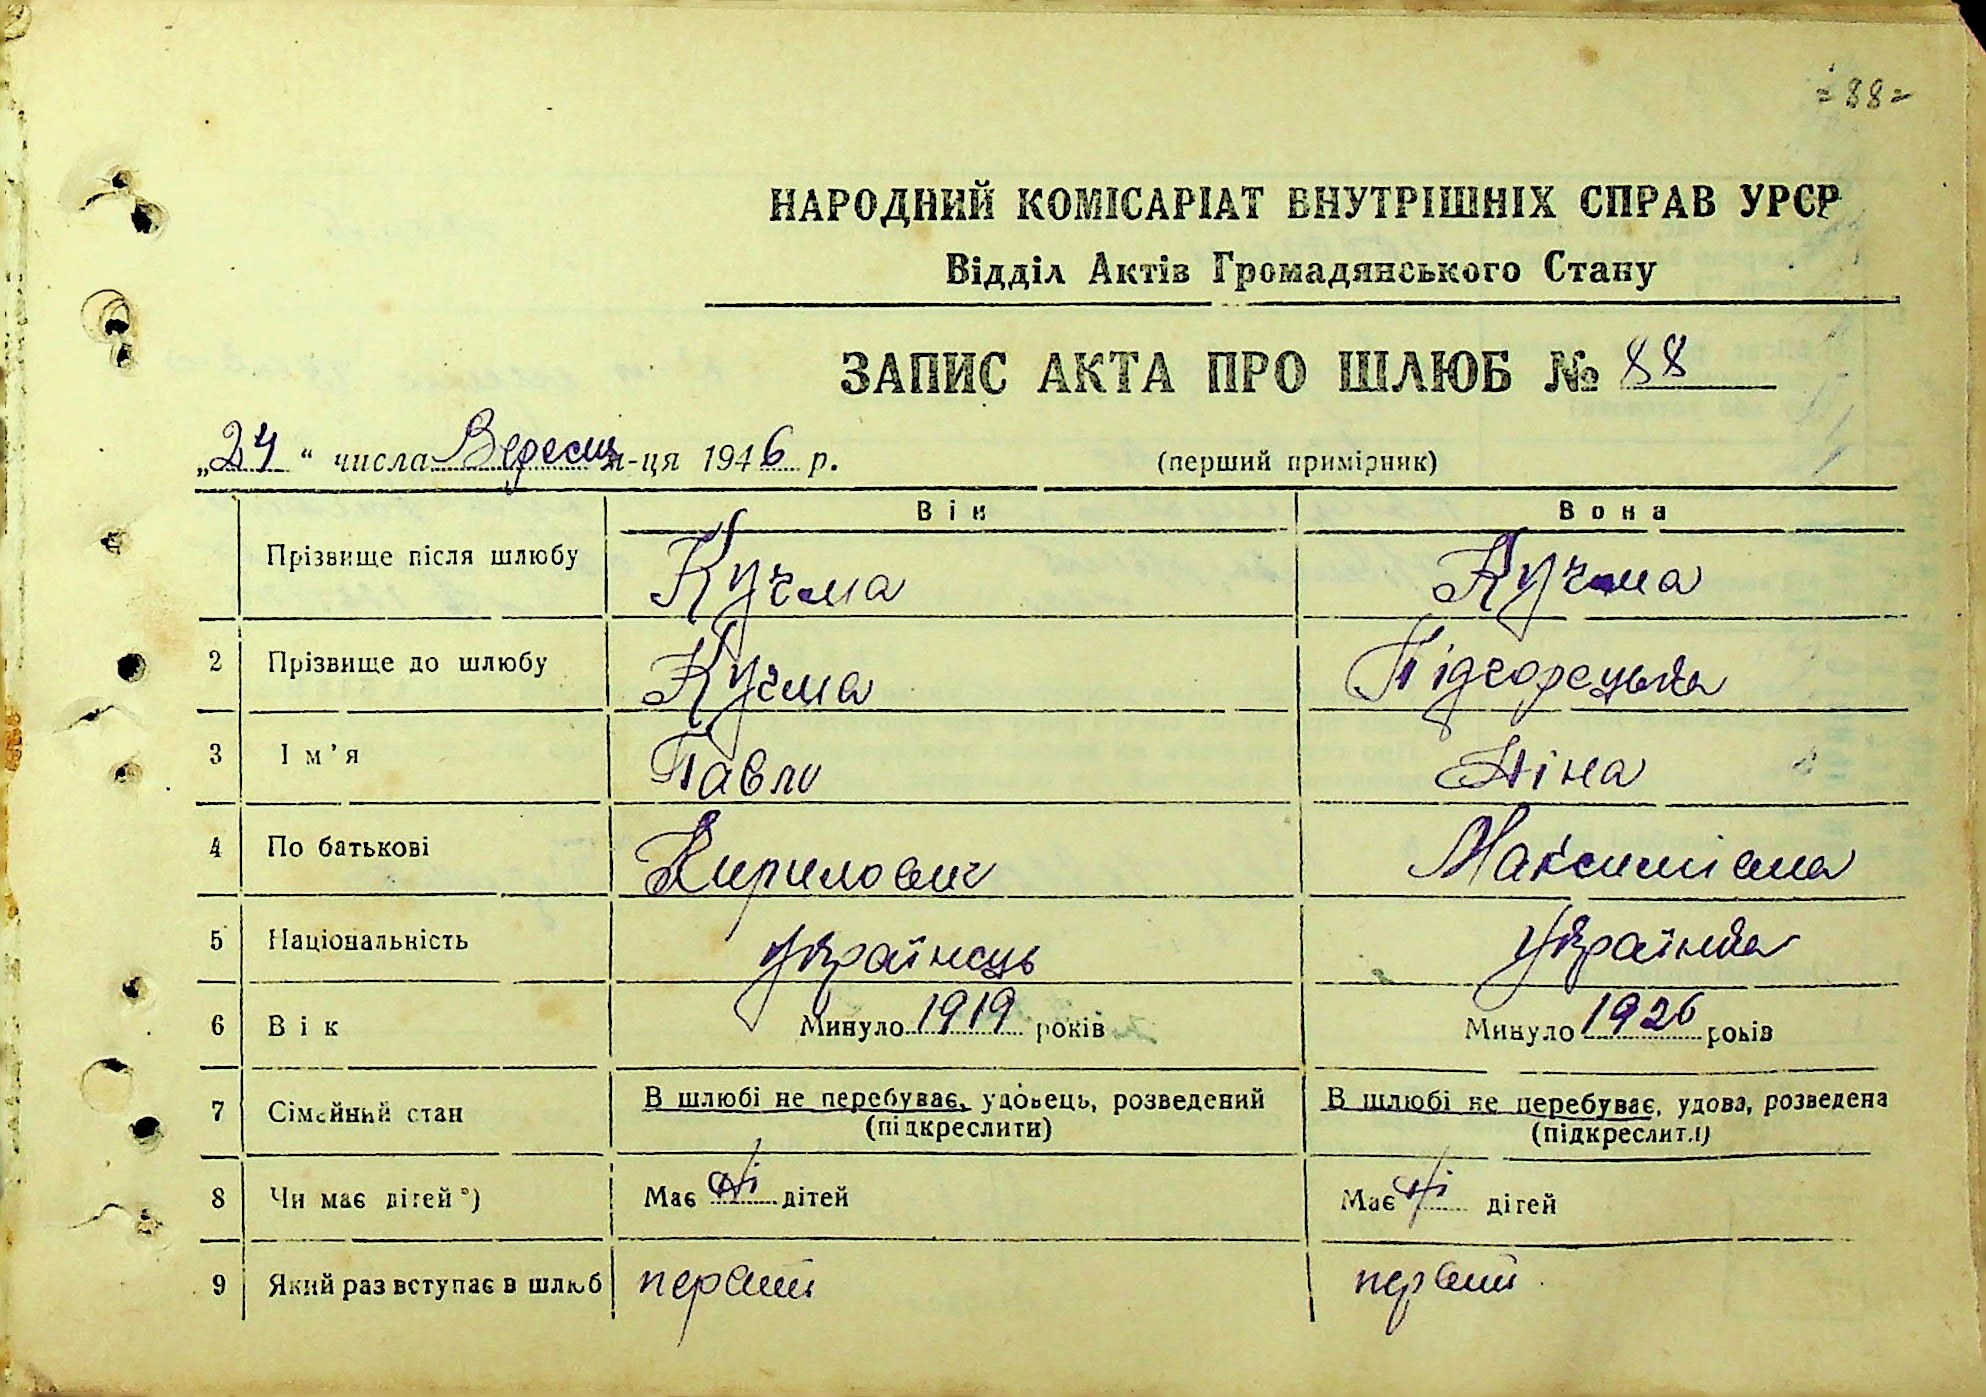 =88=
НАРОДНИЙ КОМІСАРІАТ ВНУТРІШНІХ СПРАВ УРСР
Відділ Актів Громадянського Стану
ЗАПИС АКТА ПРО ШЛЮБ № 88
„24“ числа Вересня м-ця 1946 р. (перший примірник)
Він Вона
Прізвище після шлюбу Кучма Кучма
2 Прізвище до шлюбу Кучма Підгорецька
3 Ім'я Павло Ніна
4 По батькові Кирилович Максимівна
5 Національність Українець Українка
6 Вік Минуло 1919 років Минуло 1926 років
7 Сімейний стан В шлюбі не перебуває, удовець, розведений В шлюбі не перебуває, удова, розведена
(підкреслити) (підкреслити)
8 Чи має дітей*) Має Ні дітей Має Ні дітей
9 Який раз вступає в шлюб первий первий